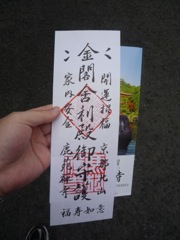 開運招福 京都北山
金閣舎利殿御守護
家内安全 鹿苑禅寺
福寿如意
寺